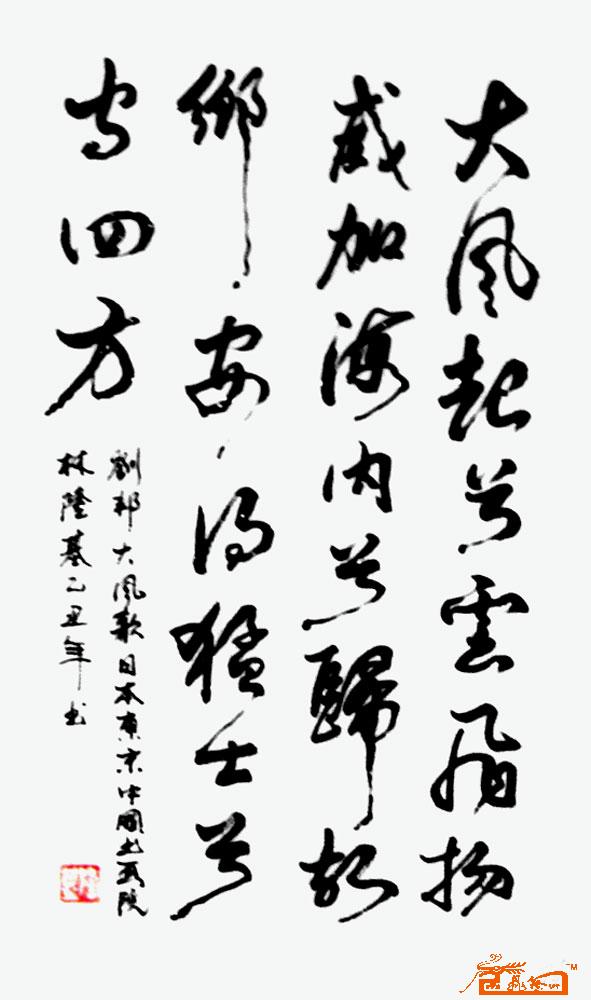 大風起兮雲飛揚
威加海内兮歸故
鄉安得猛士兮
守四方
劉邦大風歌日本東京中國书画院
林隆基乙丑年书
TM